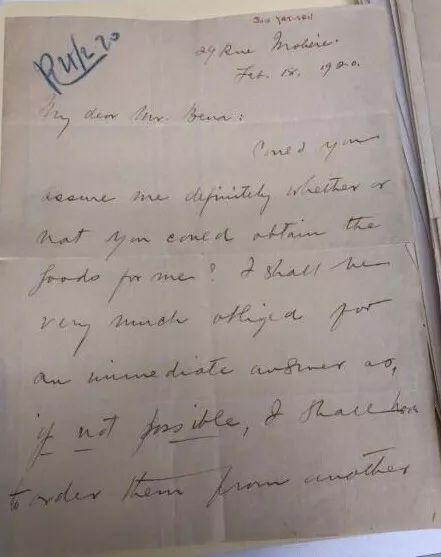 SUN YAT-SEN
R 21/2 20
29 Rue Molière.
Feb. 18, 1920.
My dear Mr. :
Could you
assure me definitely whether or
not you could obtain the
goods for me? I shall be
very much obliged for
an immediate answer as,
if not possible, I shall have
to order them from another